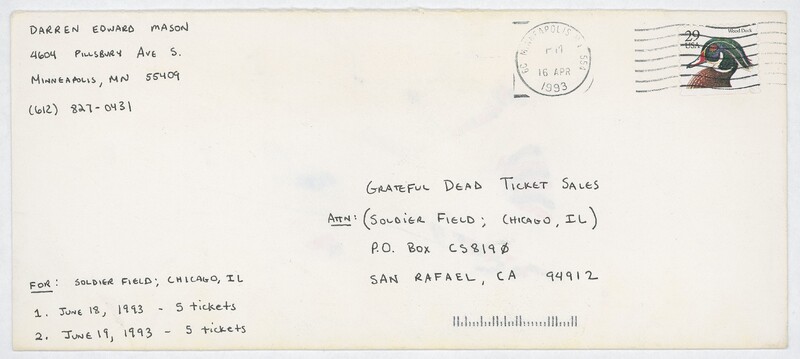 DARREN EDWARD MASON
4604 PILLSBURY AVE S.
MINNEAPOLIS, MN 55409
(612) 827-0431
MINNEAPOLIS
PM
16 APR
1993
29
USA
Wood Duck
GRATEFUL DEAD TICKET SALES
ATTN: (SOLDIER FIELD; CHICAGO, IL)
P.O. BOX CS8190
SAN RAFAEL, CA 94912
FOR: SOLDIER FIELD; CHICAGO, IL
1. JUNE 18, 1993 - 5 tickets
2. JUNE 19, 1993 - 5 tickets